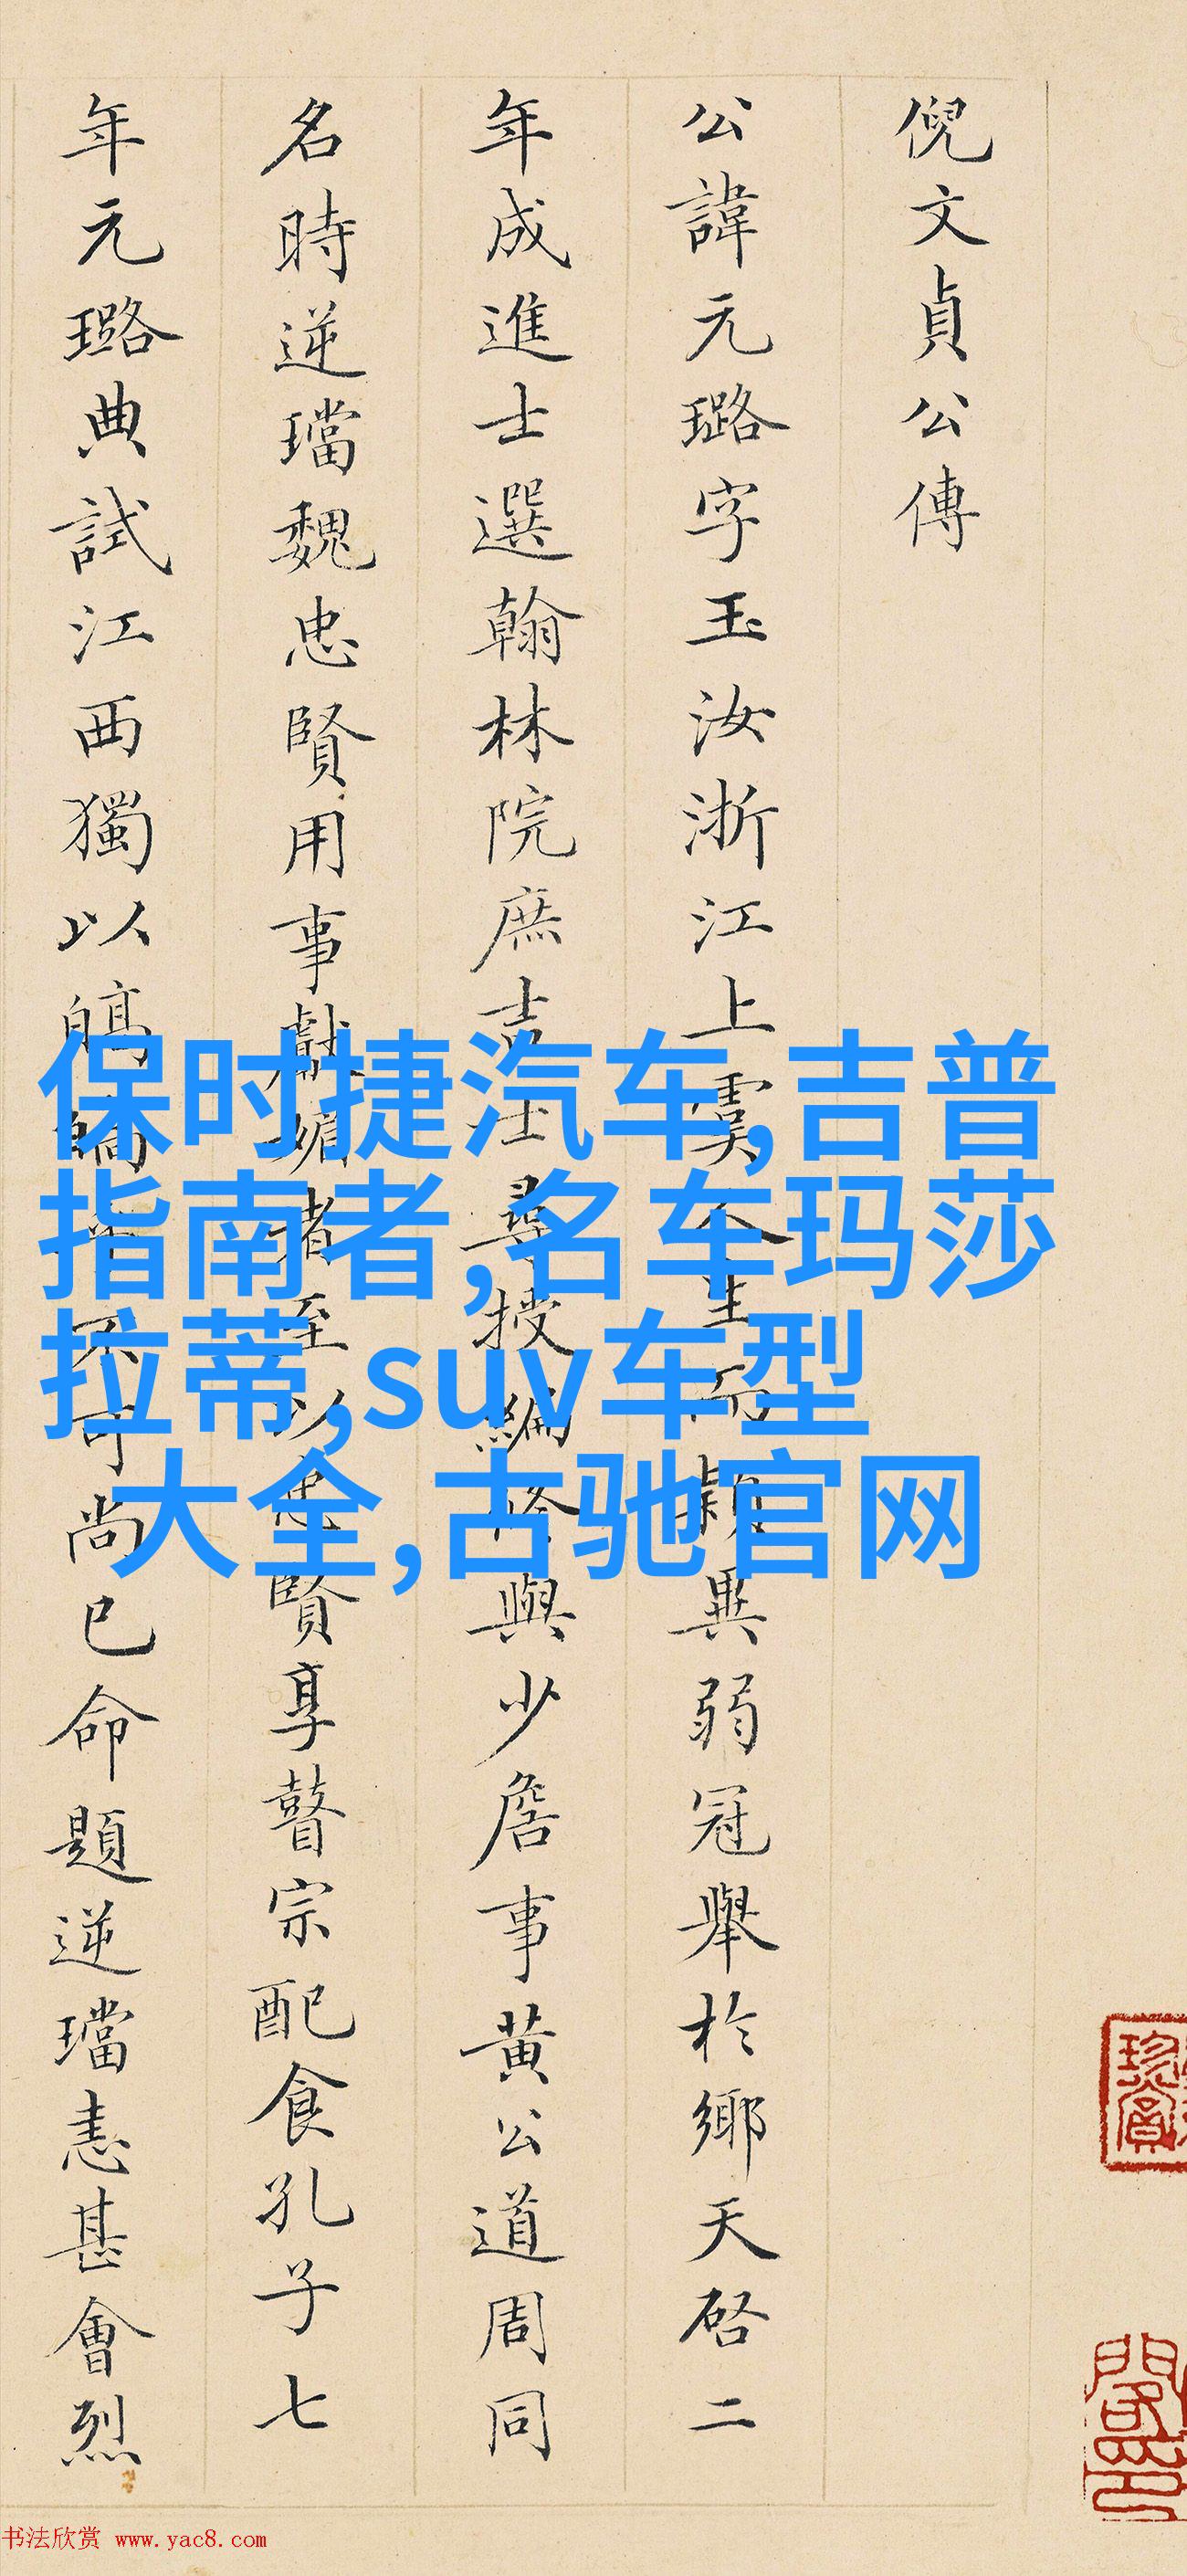 倪文貞公傳
公諱元璐字玉汝浙江上虞人生而穎異弱冠舉於鄉天啓二
年成進士選翰林院庶吉士尋授編修與少詹事黃公道周同
名時逆璫魏忠賢用事獻媚者至以忠賢享瞽宗配食孔子七
年元璐典試江西獨以皜皜乎不可尚已命題逆璫恚甚會烈
保时捷汽车,吉普
指南者,名车玛莎
拉蒂,suv车型
大全,古驰官网
书法欣赏 www.yac8.com